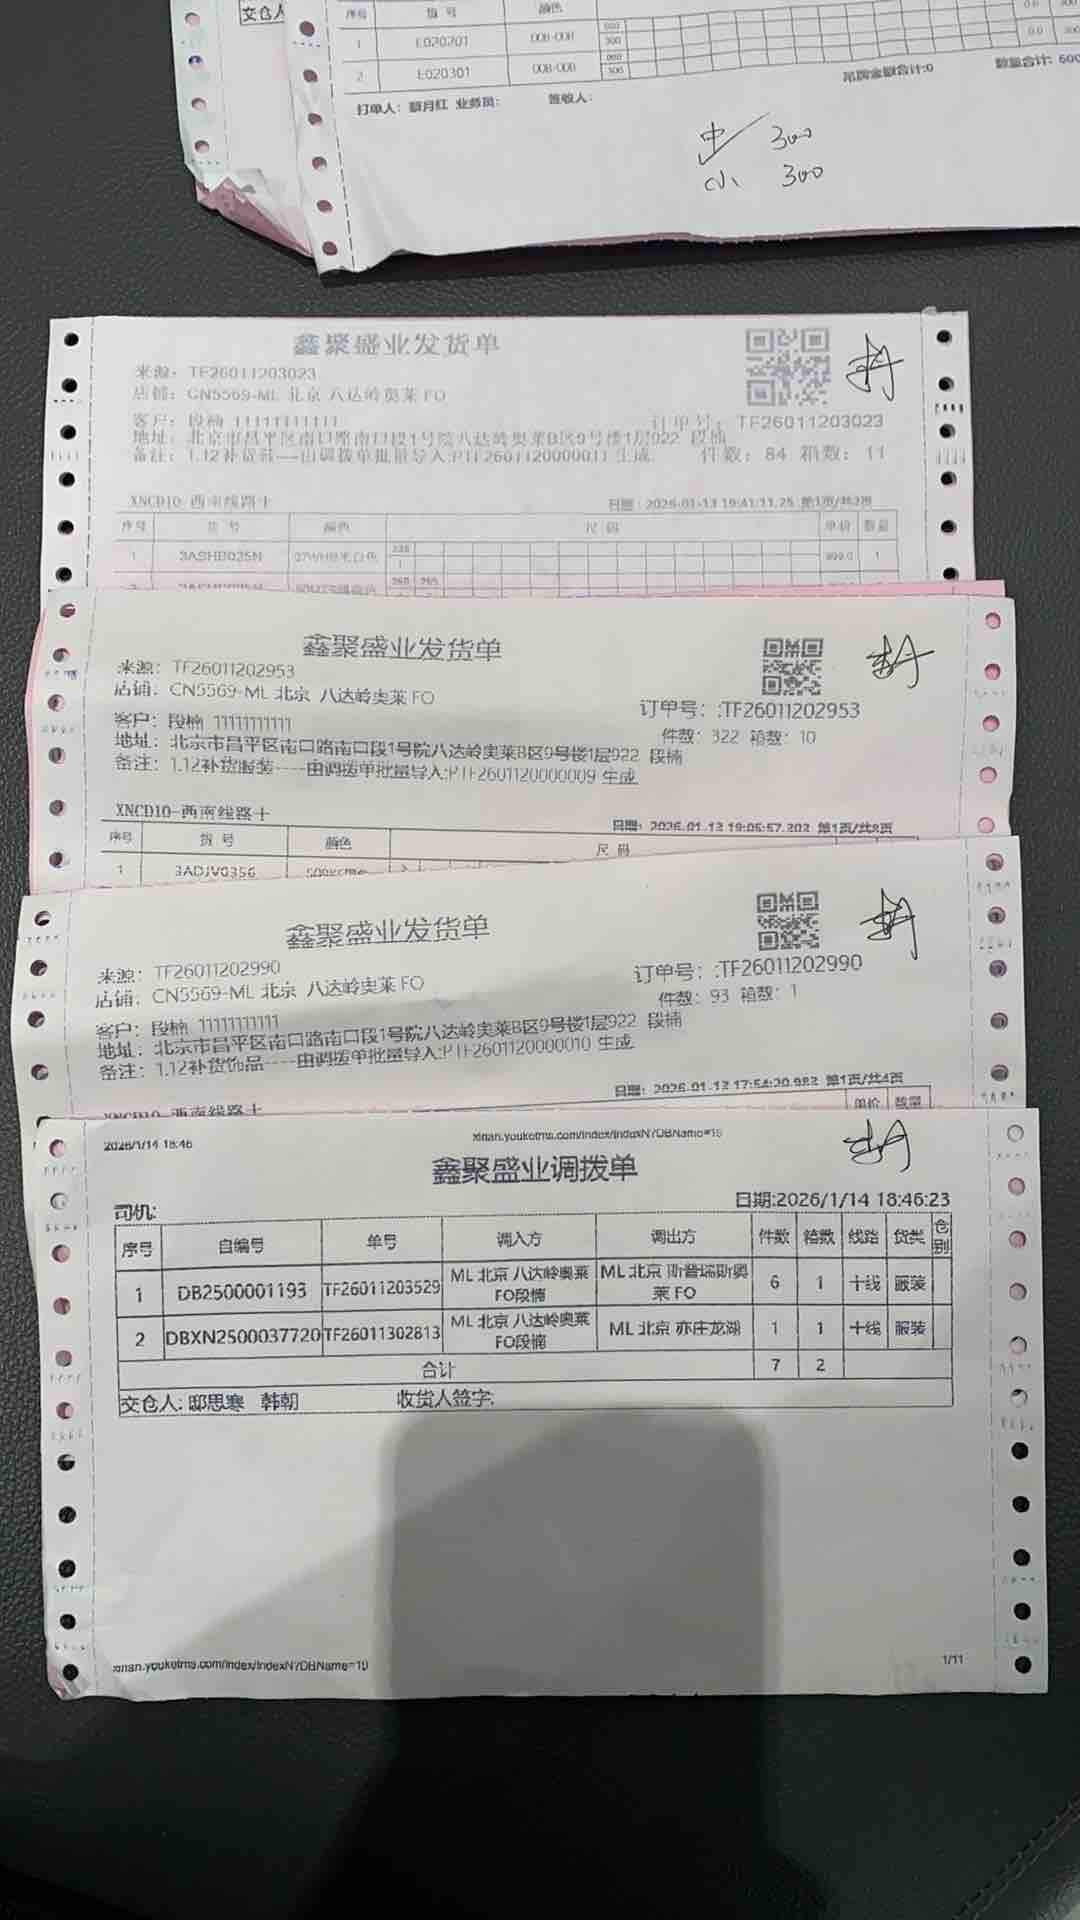 交仓人
序号 货 号 颜色
1 E020201 00B-00B 000 300 0.0 300
2 E020301 00B-00B 000 300 0.0 300
吊牌金额合计:0 数量合计: 600
打单人: 蔡月红 业务员: 签收人:
中 300
小 300
鑫聚盛业发货单
来源: TF26011203023
店铺: CN5569-ML 北京 八达岭奥莱 FO
客户: 段楠 11111111111
订单号: TF26011203023
地址: 北京市昌平区南口路南口段1号院八达岭奥莱B区9号楼1层922 段楠
备注: 1.12补货鞋----由调拨单批量导入:PTF2601120000011 生成
件数: 84 箱数: 11
XNCD10-西南线路十
日期: 2026-01-13 19:41:11.25 第1页/共3页
序号 货 号 颜色 尺 码 单价 数量
1 3ASHB025N 999.0 1
260 265
鑫聚盛业发货单
来源: TF26011202953
店铺: CN5569-ML 北京 八达岭奥莱 FO
订单号: :TF26011202953
客户: 段楠 11111111111
件数: 322 箱数: 10
地址: 北京市昌平区南口路南口段1号院八达岭奥莱B区9号楼1层922 段楠
备注: 1.12补货服装----由调拨单批量导入:PTF2601120000009 生成
XNCD10-西南线路十
日期: 2026-01-13 19:05:57.203 第1页/共8页
序号 货 号 颜色 尺 码
1 3ADJV0356
鑫聚盛业发货单
来源: TF26011202990
店铺: CN5569-ML 北京 八达岭奥莱 FO
订单号: :TF26011202990
客户: 段楠 11111111111
件数: 93 箱数: 1
地址: 北京市昌平区南口路南口段1号院八达岭奥莱B区9号楼1层922 段楠
备注: 1.12补货饰品----由调拨单批量导入:PTF2601120000010 生成
日期: 2026-01-13 17:54:20.983 第1页/共4页
XNCD10-西南线路十
单价 数量
2026/1/14 18:46
xinan.youketms.com/Index/IndexN?DBName=19
鑫聚盛业调拨单
司机:
日期:2026/1/14 18:46:23
序号 自编号 单号 调入方 调出方 件数 箱数 线路 货类 仓别
1 DB2500001193 TF26011203529 ML 北京 八达岭奥莱 FO段楠 ML 北京 斯普瑞斯奥莱 FO 6 1 十线 服装
2 DBXN2500037720 TF26011302813 ML 北京 八达岭奥莱 FO段楠 ML 北京 亦庄龙湖 1 1 十线 服装
合计 7 2
交仓人: 邸思寒 韩朝 收货人签字:
xinan.youketms.com/Index/IndexN?DBName=19
1/11